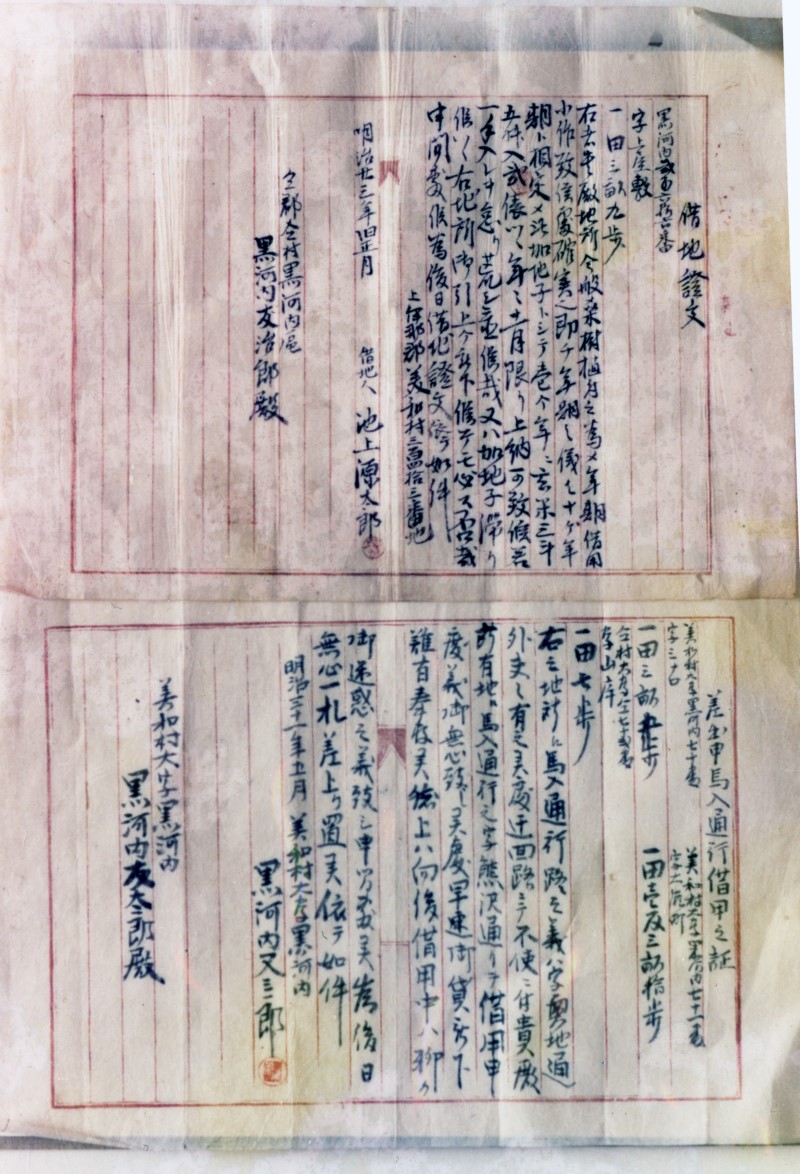 借地證文
黒河内
字上屋敷
一田三畝九歩
右者貴殿地所今般桑樹植付之為メ年期借用
小作致候處確実也即チ年期之儀ハ十ヶ年
期ト相定メ法加地子トシテ壱ヶ年ニ玄米三斗
五升入弐俵ツヽ年々十一月限リ上納可致候若
一手入レヲ怠リ荒シ置候哉又ハ加地子滞リ
候ハヾ右地所御引上ケ被下候テモ必ス否哉
申間敷候為後日借地證文依テ如件
上伊那郡美和村三百四拾三番地
明治廿三年旧正月
借地人 池上源太郎
仝郡仝村黒河内
黒河内友治郎殿
差出申馬入通行借用之証
美和村大字黒河内七十番
一田三畝歩
美和村大字黒河内七十一番
一田壱反三畝拾歩
字山岸
一田七歩
右之地所ニ馬入通行路之義ハ字奥地通
外史々有之候處迂回路ニテ不便ニ付貴殿
所有地ニ馬入通行之字熊沢通リヲ借用申
度義御無心致シ候處早速御貸被下
難有奉存候然ル上ハ向後借用中ハ聊カ
御迷惑之義致シ申間敷候為後日
無心一札差上ケ置候依テ如件
明治三十一年五月
美和村大字黒河内
黒河内又三郎
美和村大字黒河内
黒河内友太郎殿